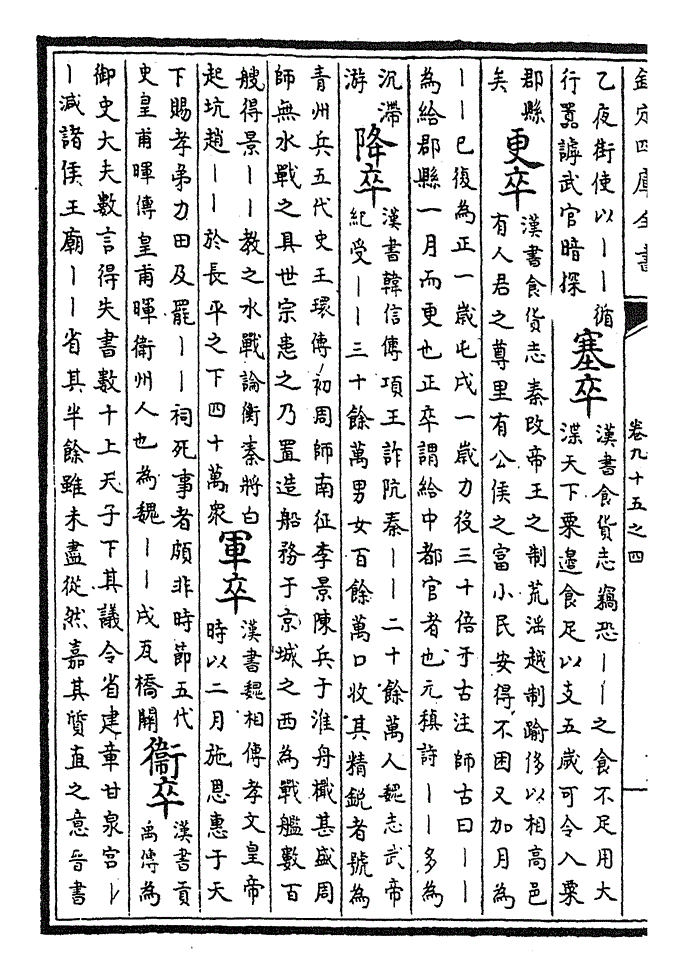 欽定四庫全書 卷九十五之四
乙夜街使以丨丨循
行嚻謼武官暗探
塞卒
漢書食貨志竊恐丨丨之食不足用大
渫天下粟邊食足以支五歲可令入粟
郡縣
矣
更卒
漢書食貨志秦改帝王之制荒淫越制踰侈以相高邑
有人君之尊里有公侯之富小民安得不困又加月為
丨丨已復為正一歲屯戍一歲力役三十倍于古注師古曰丨丨
為給郡縣一月而更也正卒謂給中都官者也元稹詩丨丨多為
沉滯
游
降卒
漢書韓信傳項王詐阬秦丨丨二十餘萬人魏志武帝
紀受丨丨三十餘萬男女百餘萬口收其精銳者號為
青州兵五代史王環傳初周師南征李景陳兵于淮舟檝甚盛周
師無水戰之具世宗患之乃置造船務于京城之西為戰艦數百
艘得景丨丨教之水戰論衡秦將白
起坑趙丨丨於長平之下四十萬衆
軍卒
漢書魏相傳孝文皇帝
時以二月施恩惠于天
下賜孝弟力田及罷丨丨祠死事者頗非時節五代
史皇甫暉傳皇甫暉衛州人也為魏丨丨戍瓦橋關
衞卒
漢書貢
禹傳為
御史大夫數言得失書數十上天子下其議令省建章甘泉宮丨
丨減諸侯王廟丨丨省其半餘雖未盡從然嘉其質直之意晉書